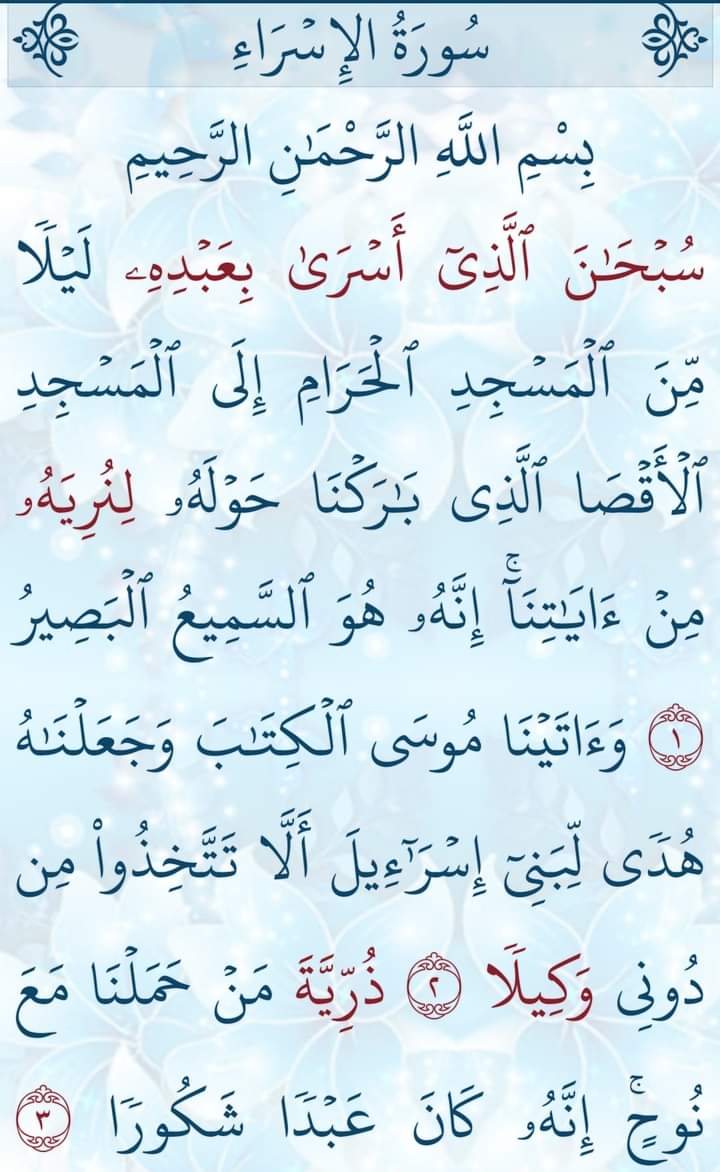 سُورَةُ الإِسۡرَاءِ
بِسْمِ اللَّهِ الرَّحْمَـٰنِ الرَّحِيمِ
سُبۡحَـٰنَ ٱلَّذِىٓ أَسۡرَىٰ بِعَبۡدِهِۦ لَيۡلًا
مِّنَ ٱلۡمَسۡجِدِ ٱلۡحَرَامِ إِلَى ٱلۡمَسۡجِدِ
ٱلۡأَقۡصَا ٱلَّذِى بَـٰرَكۡنَا حَوۡلَهُۥ لِنُرِيَهُۥ
مِنۡ ءَايَـٰتِنَآۚ إِنَّهُۥ هُوَ ٱلسَّمِيعُ ٱلۡبَصِيرُ
١ وَءَاتَيۡنَا مُوسَى ٱلۡكِتَـٰبَ وَجَعَلۡنَـٰهُ
هُدًى لِّبَنِىٓ إِسۡرَٰٓءِيلَ أَلَّا تَتَّخِذُوا۟ مِن
دُونِى وَكِيلًا ٢ ذُرِّيَّةَ مَنۡ حَمَلۡنَا مَعَ
نُوحٍۚ إِنَّهُۥ كَانَ عَبۡدًا شَكُورًا ٣